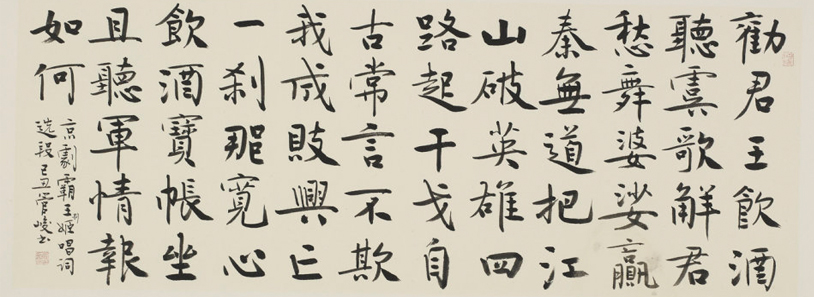 勸君王飲酒
聽虞歌解君
愁舞婆娑贏
秦無道把江
山破英雄四
路起干戈自
古常言不欺
我成敗興亡
一刹那寬心
飲酒寶帳坐
且聽軍情報
如何
京劇霸王别姬唱词
選段己丑管峻书